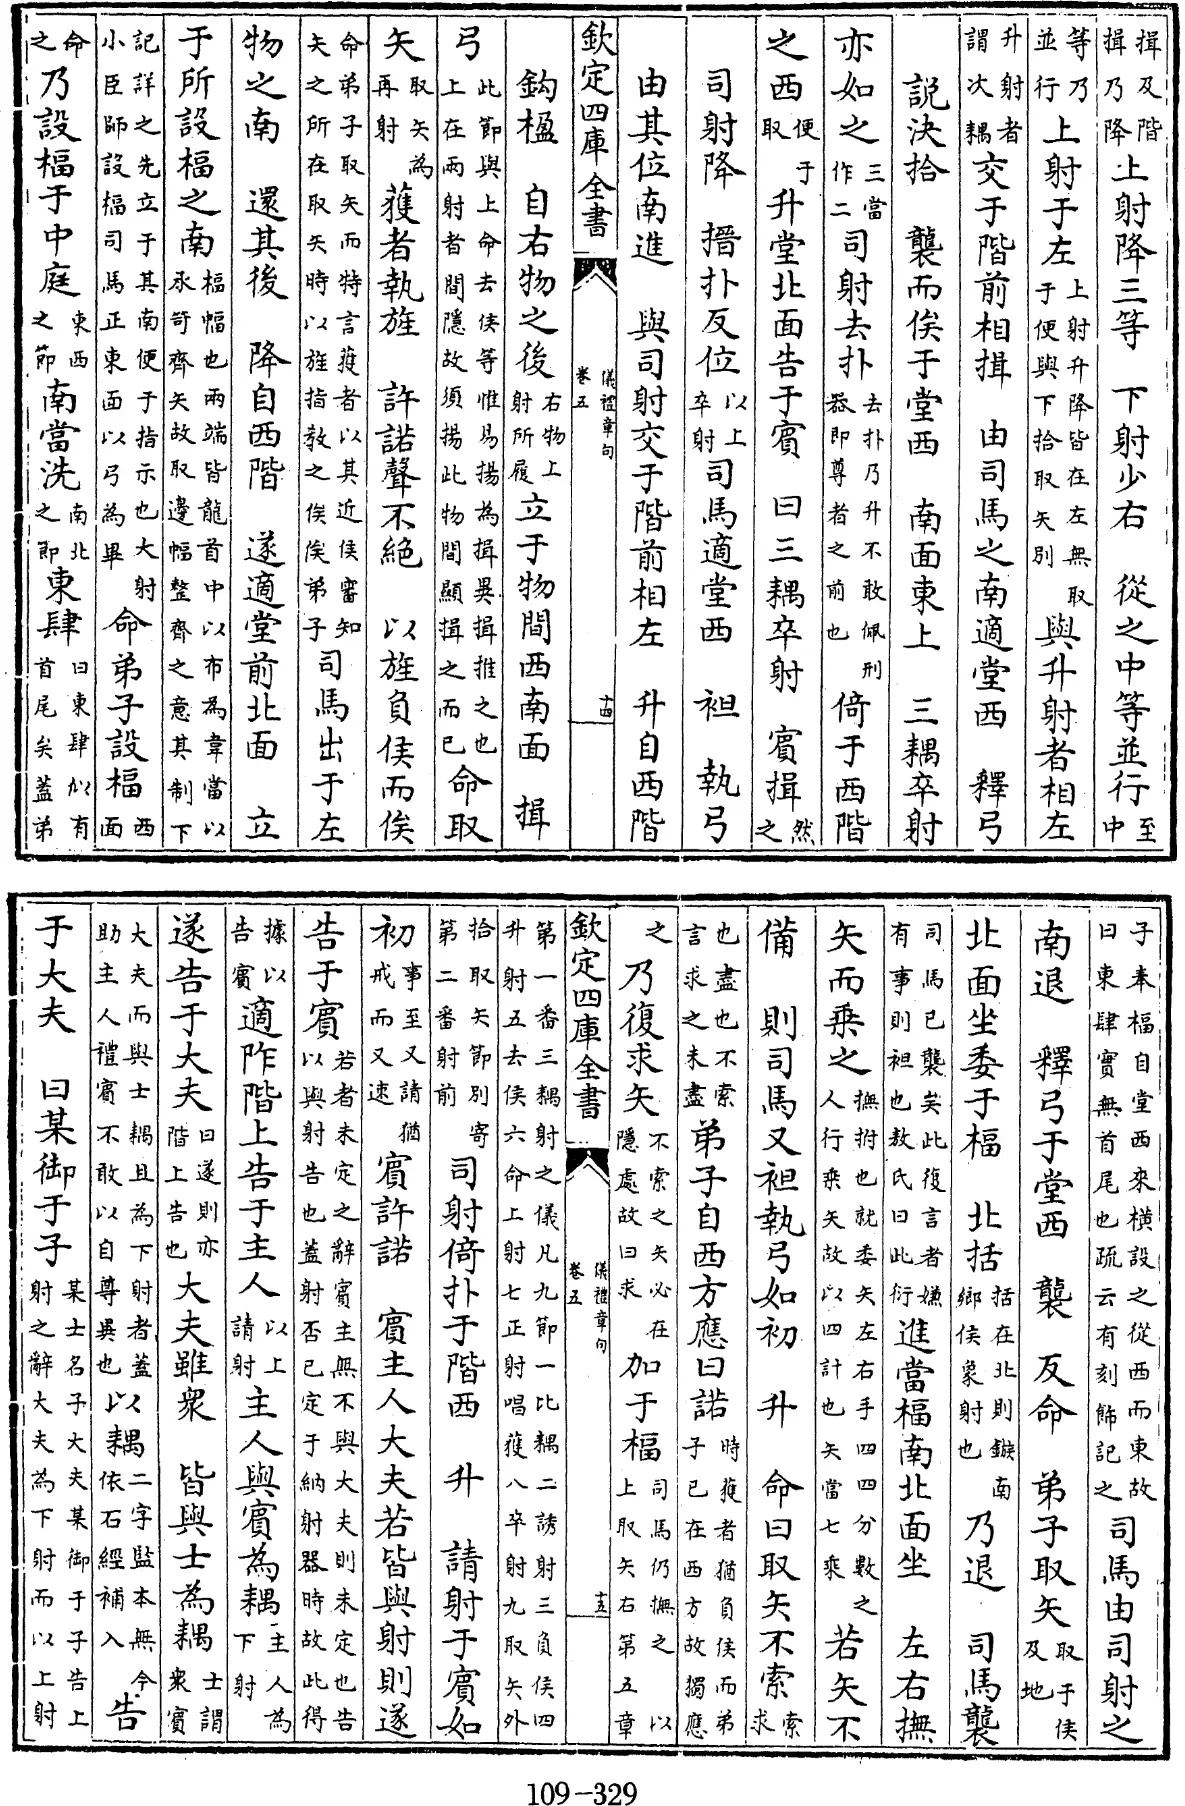 揖及階揖乃降上射降三等　下射少右　從之中等並行至中
等乃並行上射于左上射升降皆在左無取于便與下拾取矢别與升射者相左
升射者謂次耦交于階前相揖　由司馬之南適堂西　釋弓
説決拾　襲而俟于堂西　南面東上　三耦卒射
亦如之三當作二司射去扑去扑乃升不敢佩刑器即尊者之前也倚于西階
之西便于取升堂北面告于賓　曰三耦卒射　賓揖然之
司射降　搢扑反位以上卒射司馬適堂西　袒　執弓
由其位南進　與司射交于階前相左　升自西階
欽定四庫全書　儀禮章句　卷五　十四
鈎楹　自右物之後右物上射所履立于物間西南面　揖
弓此節與上命去侯等惟易揚為揖異揖推之也上在兩射者間隱故須揚此物間顯揖之而已命取
矢取矢為再射獲者執旌　許諾聲不絶　以旌負侯而俟
命弟子取矢而特言獲者以其近侯審知矢之所在取矢時以旌指教之俟俟弟子司馬出于左
物之南　還其後　降自西階　遂適堂前北面　立
于所設楅之南楅幅也兩端皆龍首中以布為韋當以承笴齊矢故取邊幅整齊之意其制下
記詳之先立于其南便于指示也大射小臣師設楅司馬正東面以弓為畢命弟子設楅西面
命之乃設楅于中庭東西之節南當洗南北之節東肆曰東肆似有首尾矣蓋弟
子奉楅自堂西來橫設之從西而東故曰東肆實無首尾也疏云有刻飾記之司馬由司射之
南退　釋弓于堂西　襲　反命　弟子取矢取于侯及地
北面坐委于楅　北括括在北則鏃南鄉侯象射也乃退　司馬襲
司馬已襲矣此復言者嫌有事則袒也敖氏曰此衍進當楅南北面坐　左右撫
矢而乘之撫拊也就委矢左右手四四分數之人行乘矢故以四計也矢當七乘若矢不
備　則司馬又袒執弓如初　升　命曰取矢不索索求
也盡也不索言求之未盡弟子自西方應曰諾時獲者猶負侯而弟子已在西方故獨應
之　乃復求矢不索之矢必在隱處故曰求加于楅司馬仍撫之以上取矢右第五章
欽定四庫全書　儀禮章句　卷五　十五
第一番三耦射之儀凡九節一比耦二誘射三負侯四升射五去侯六命上射七正射唱獲八卒射九取矢外
拾取矢節别寄第二番射前司射倚扑于階西　升　請射于賓如
初事至又請猶戒而又速賓許諾　賓主人大夫若皆與射則遂
告于賓若者未定之辭賓主無不與大夫則未定也告以與射告也蓋射否已定于納射器時故此得
據以告賓適阼階上告于主人以上請射主人與賓為耦主人為下射
遂告于大夫曰遂則亦階上告也大夫雖衆　皆與士為耦士謂衆賓
大夫而與士耦且為下射者蓋助主人禮賓不敢以自尊異也以耦二字監本無今依石經補入告
于大夫　曰某御于子某士名子大夫某御于子告上射之辭大夫為下射而以上射
109-329